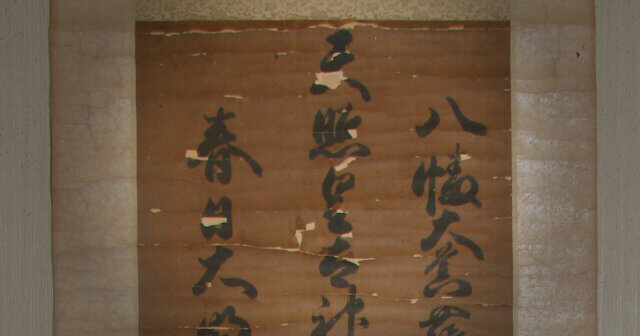 八幡大菩薩
天照皇大神
春日大明